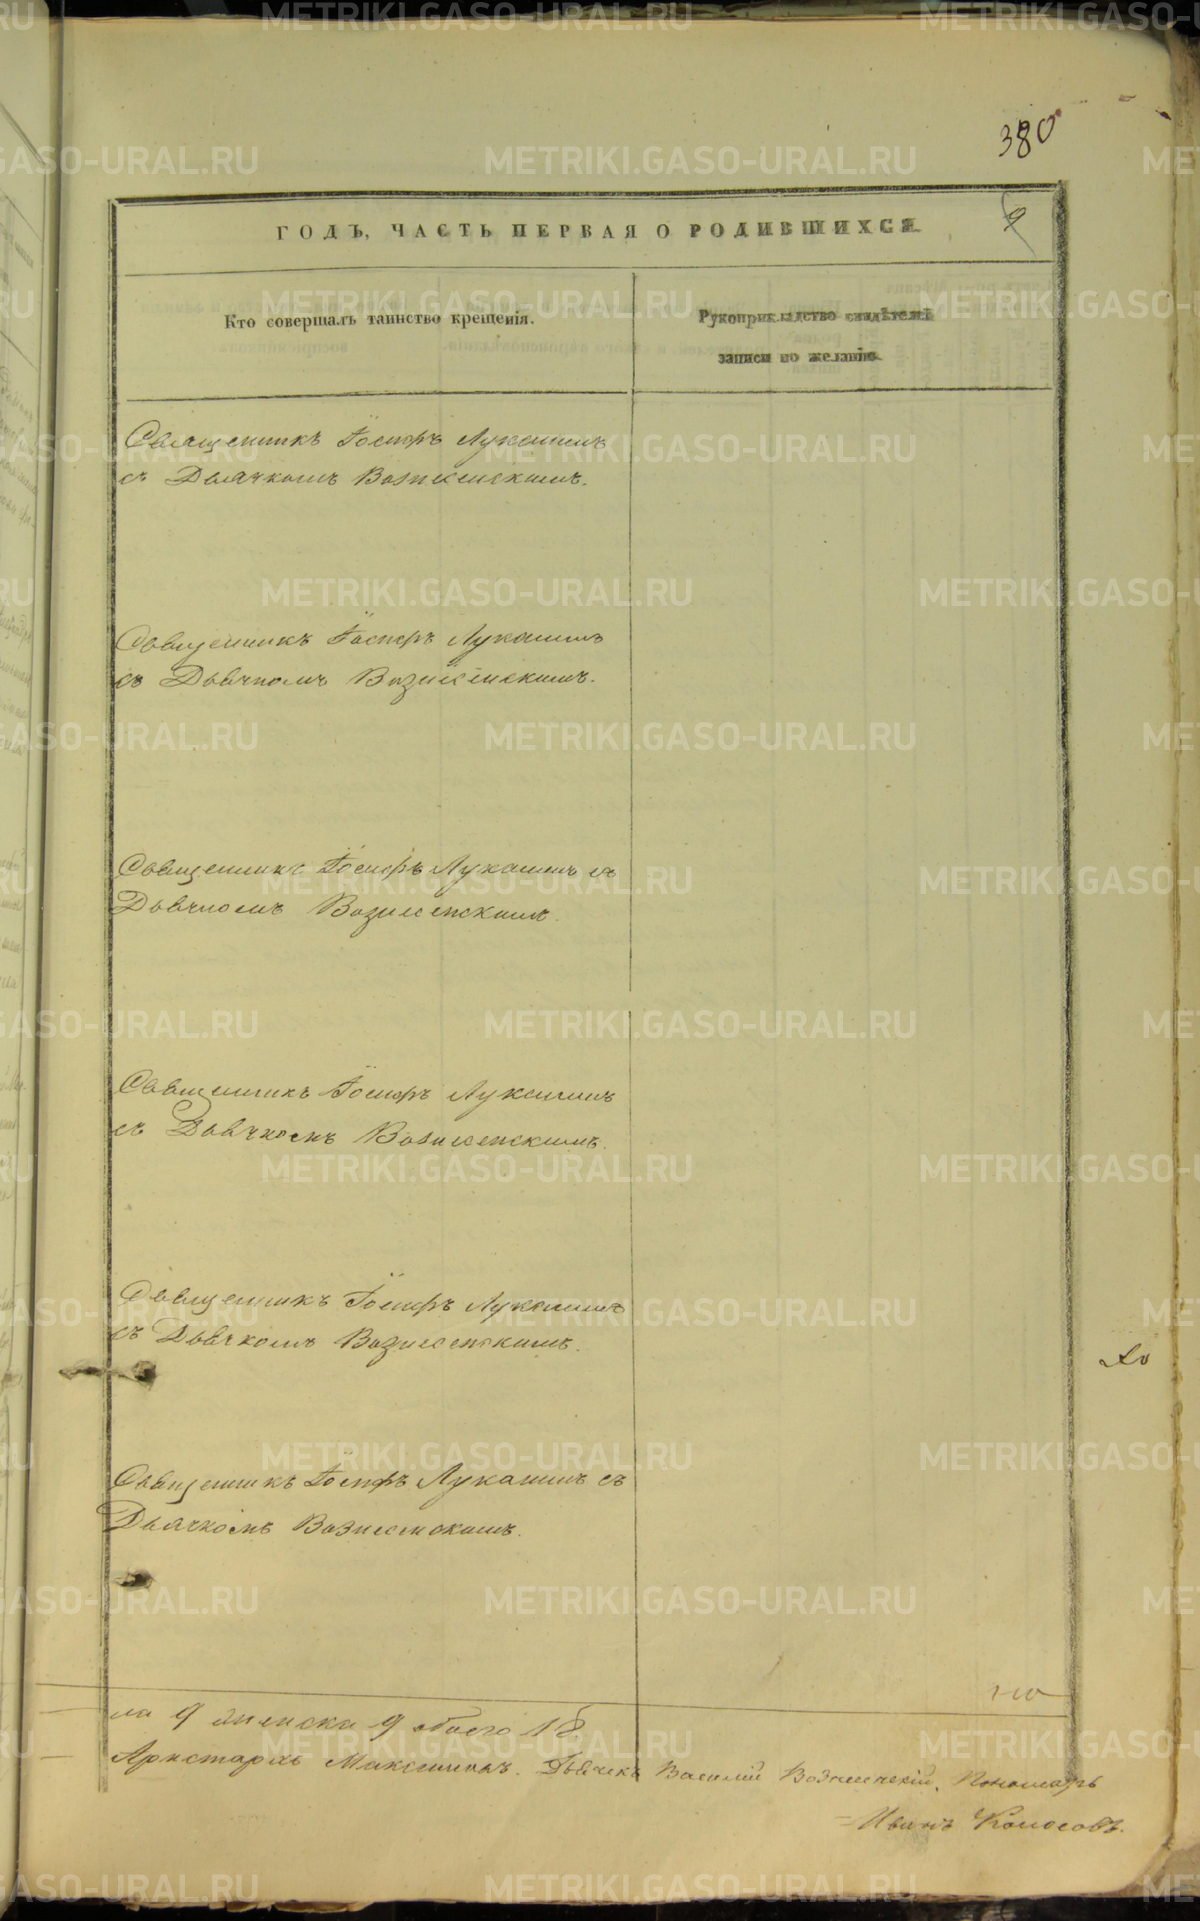 380
ГОДЪ, ЧАСТЬ ПЕРВАЯ О РОДИВШИХСЯ.
9
Кто совершалъ таинство крещенія.
Рукоприкладство свидѣтелей
записи по желанію.
Священникъ Іосифъ Лукашинъ
съ Дьячкомъ Вознесенскимъ.
Священникъ Іосифъ Лукашинъ
съ Дьячкомъ Вознесенскимъ.
Священникъ Іосифъ Лукашинъ съ
Дьячкомъ Вознесенскимъ.
Священникъ Іосифъ Лукашинъ
съ Дьячкомъ Вознесенскимъ.
Священникъ Іосифъ Лукашинъ
съ Дьячкомъ Вознесенскимъ.
Священникъ Іосифъ Лукашинъ съ
Дьячкомъ Вознесенскимъ.
9 женска 9 обоего 18.
Аристархъ Максимовъ. Дьячекъ Василій Вознесенскій. Пономарь
Иванъ Колосовъ.
METRIKI.GASO-URAL.RU